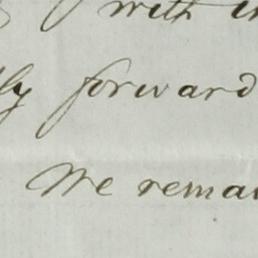 with
ly forward
We remai